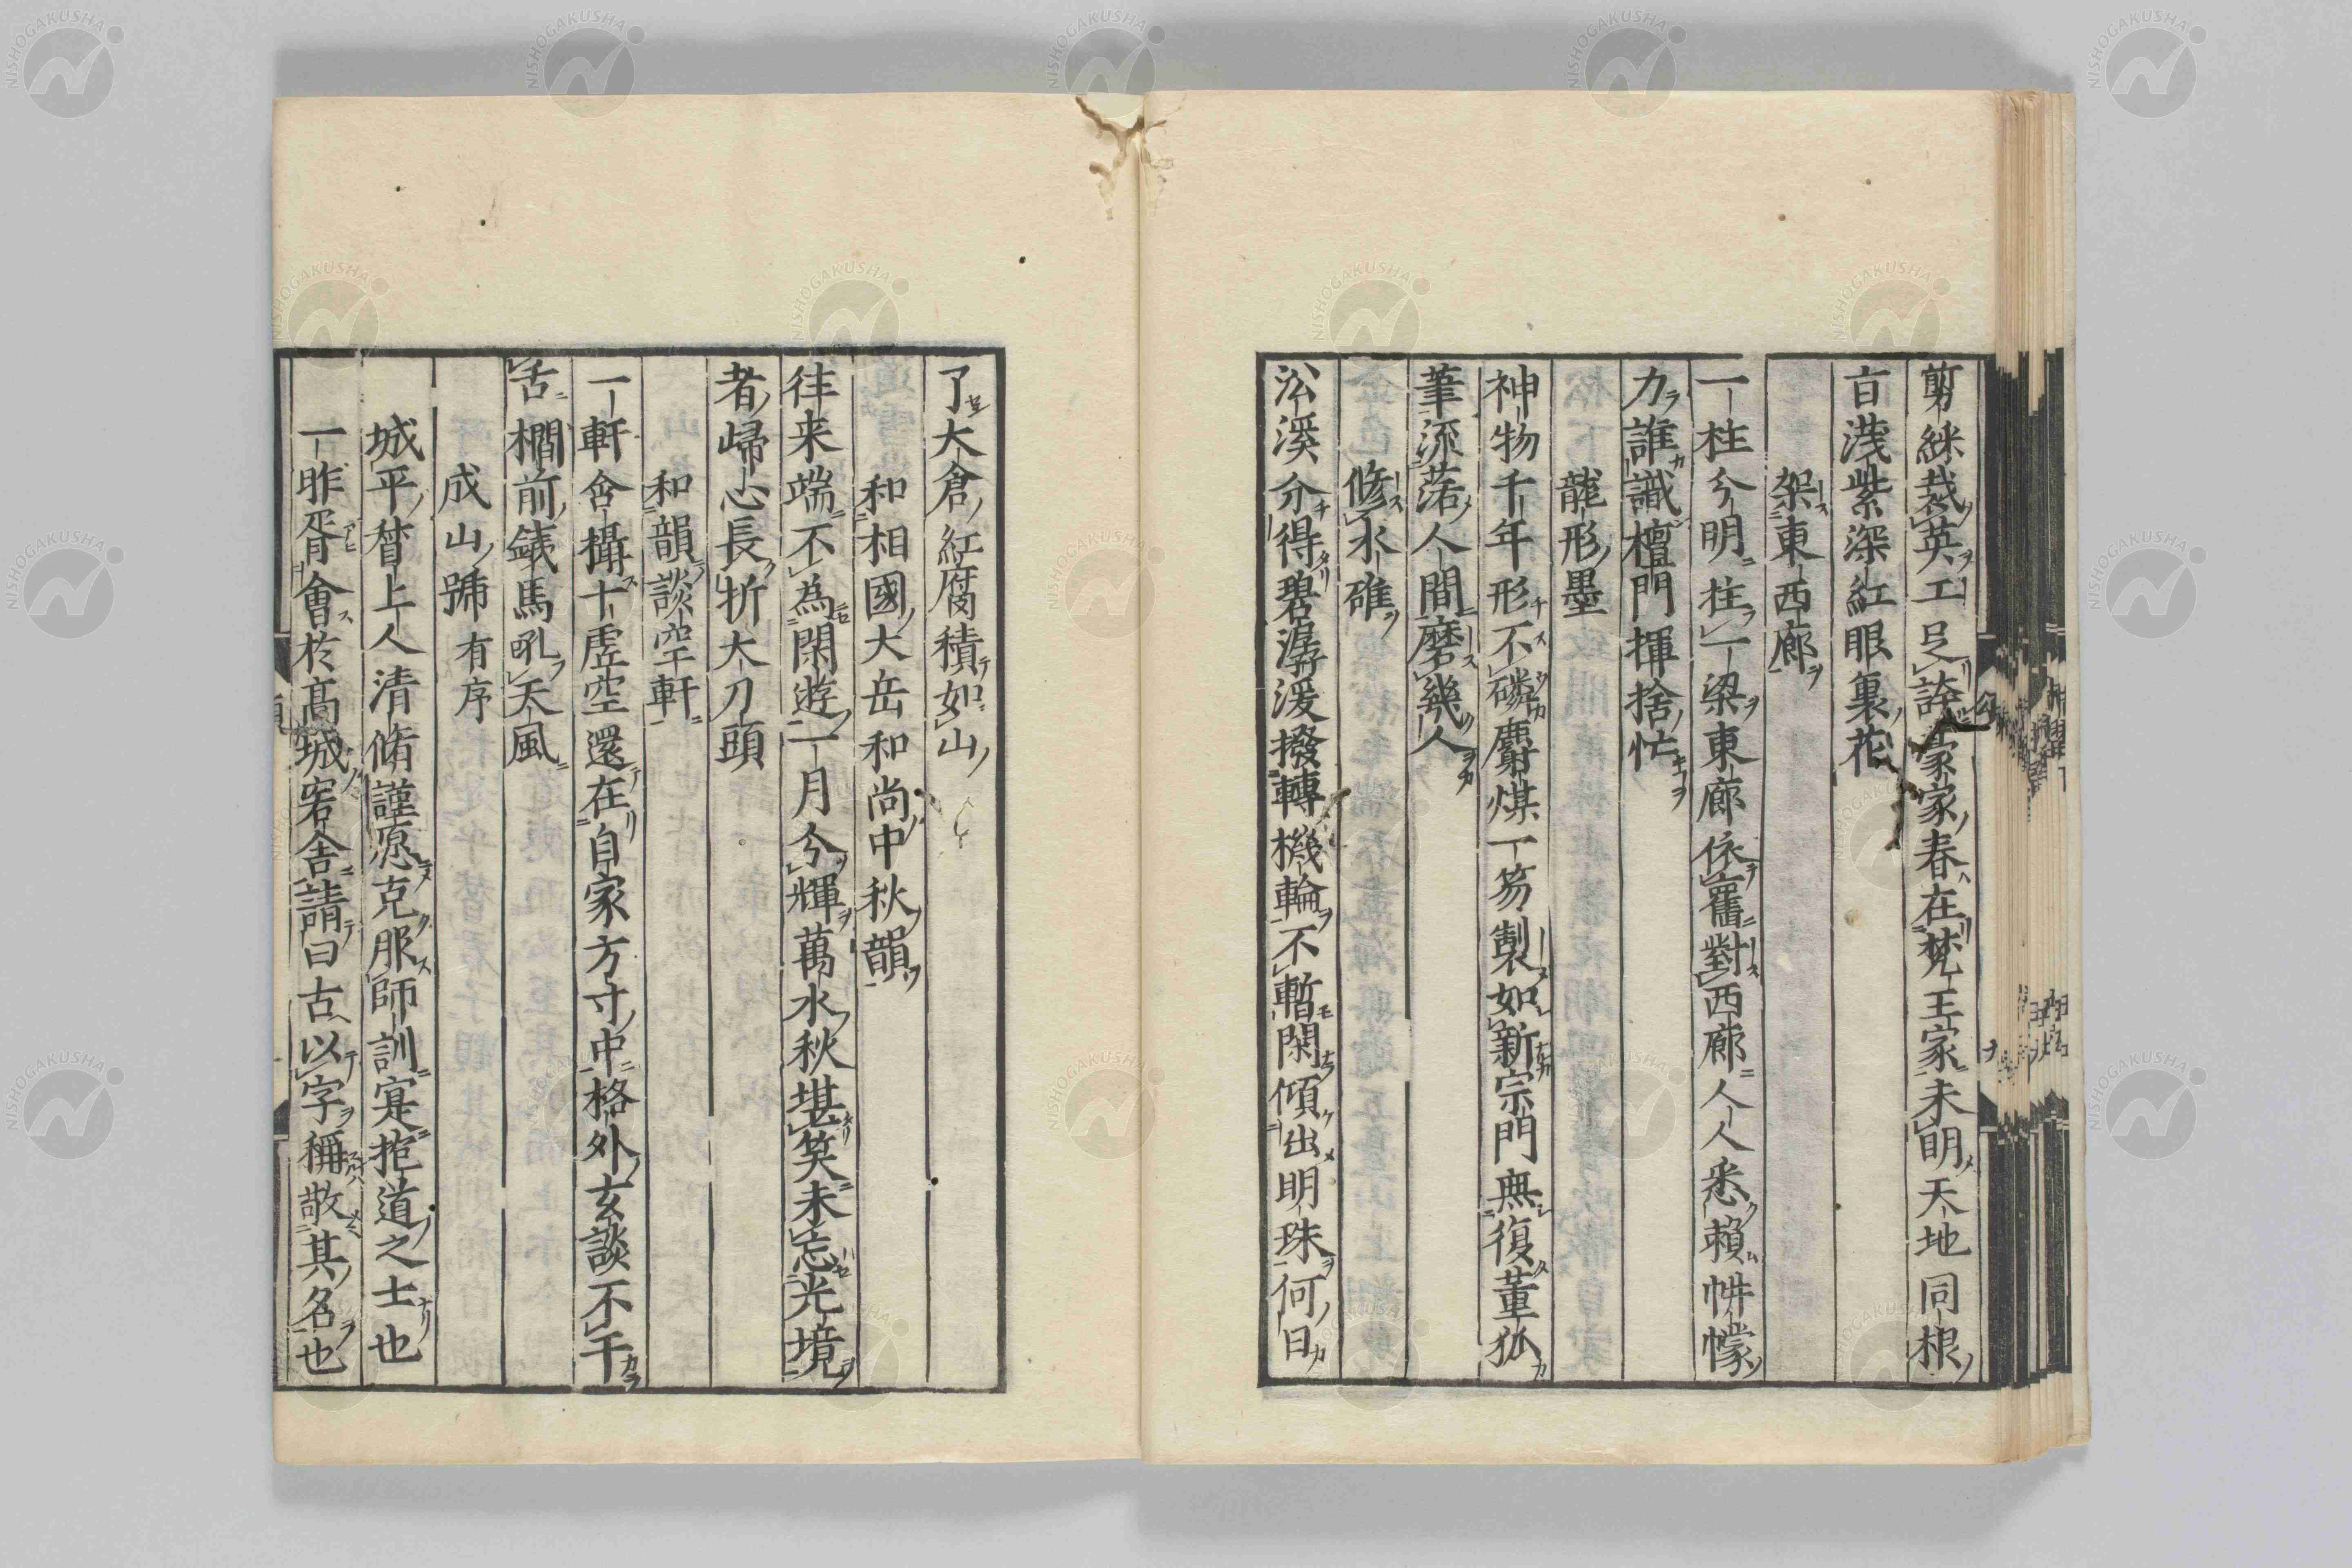 剪綵裁英工巳誇豪家春在梵王家未明天地同根
㫖淺紫深紅眼裏花
架東西廊
一柱今明柱一梁東廊依舊對西廊人人悉賴帡幪
力誰識檀門揮捨忙
龍形墨
神物千年形不磷麝煤一笏製如新宗門無復董狐
筆流落人間磨幾人
修水碓
沿溪分得碧潺湲撥轉機輪不暫閑傾出明珠何日
了大倉紅腐積如山
和相國大岳和尚中秋韻
往来端不為閑遊一月分輝萬水秋堪笑未忘光境
者歸心長折大刀頭
和韻談空軒
一軒含攝十虛空還在自家方寸中格外玄談不干
舌櫩前鐵馬吼天風
成山號有序
城平稽上人清脩謹愿克服師訓寔抱道之士也
一昨胥會於高城客舍請曰古以字稱敬其名也
NISHOGAKUSHA